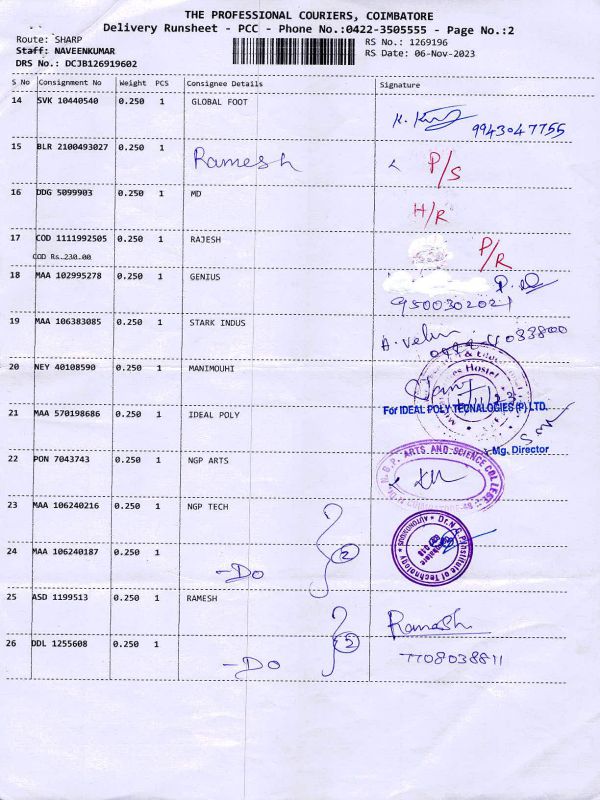 THE PROFESSIONAL COURIERS, COIMBATORE
Delivery Runsheet - PCC - Phone No.:0422-3505555 - Page No.:2
Route: SHARP
RS No.: 1269196
Staff: NAVEENKUMAR
RS Date: 06-Nov-2023
DRS No.: DCJB126919602
S No Consignment No Weight PCS Consignee Details Signature
14 SVK 10440540 0.250 1 GLOBAL FOOT
9943047755
15 BLR 2100493027 0.250 1 Ramesh P/S
16 DDG 5099903 0.250 1 MD H/R
17 COD 1111992505 0.250 1 RAJESH P/R
COD Rs.230.00
18 MAA 102995278 0.250 1 GENIUS
9500302021
19 MAA 106383085 0.250 1 STARK INDUS A. Velu
033800
20 NEY 40108590 0.250 1 MANIMOUHI
Hostel
21 MAA 570198686 0.250 1 IDEAL POLY
For IDEAL POLY TECNALOGIES (P) LTD.
Mg. Director
22 PON 7043743 0.250 1 NGP ARTS
N.G.P. ARTS AND SCIENCE COLLEGE
23 MAA 106240216 0.250 1 NGP TECH
Dr.N.G.P.Institute of Technology
AUTONOMOUS
24 MAA 106240187 0.250 1 -Do 2
25 ASD 1199513 0.250 1 RAMESH Ramesh
26 DDL 1255608 0.250 1 -Do 2
7708038811